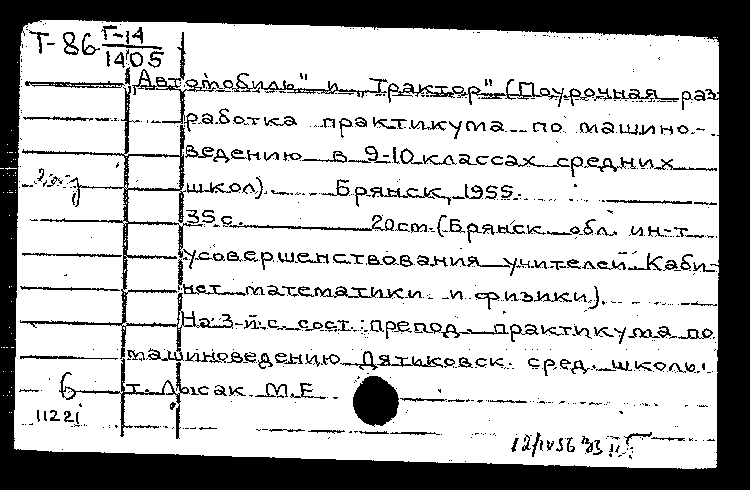 Т-86 Г-14
1405
„Автомобиль" и „Трактор" (Поурочная раз-
работка практикума по машино-
ведению в 9-10 классах средних
школ). Брянск, 1955.
35 с. 20 см. (Брянск. обл. ин-т
усовершенствования учителей. Каби-
нет математики и физики).
На 3-й с. сост.: препод. практикума по
машиноведению Дятиковск. сред. школы.
т. Лысак М.Г.
6
1122i
12/IV 56